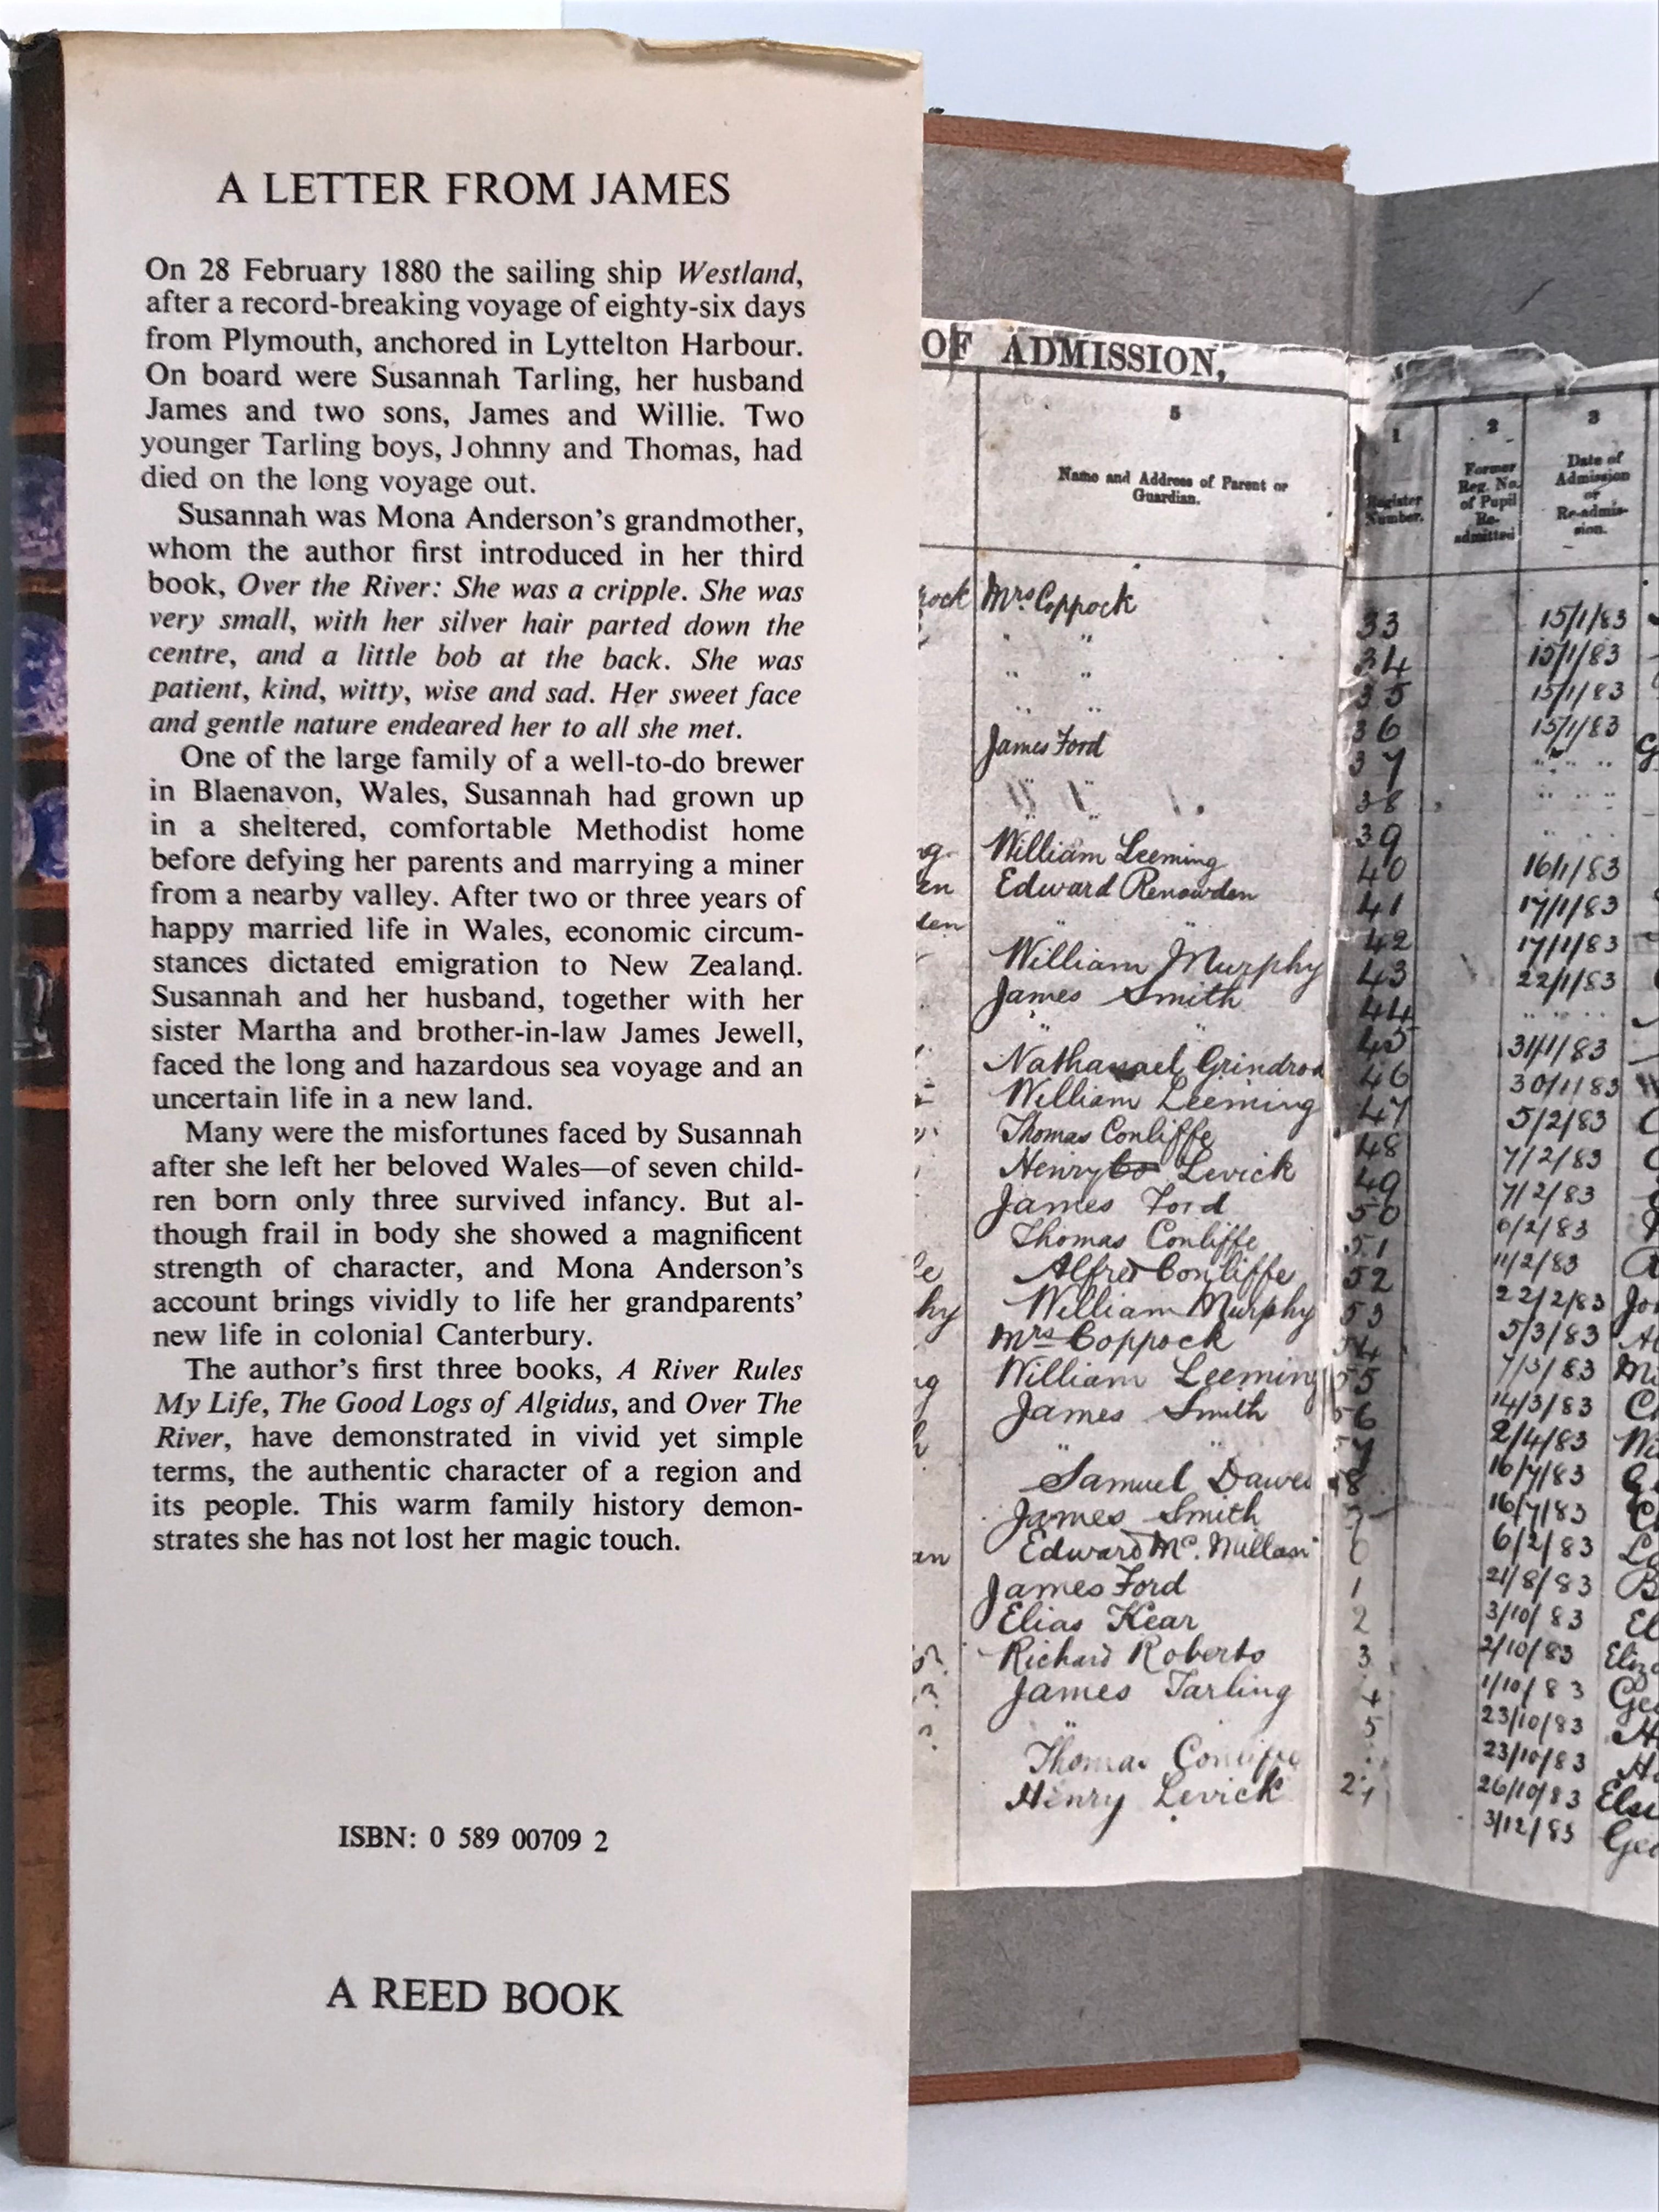 A LETTER FROM JAMES
On 28 February 1880 the sailing ship Westland,
after a record-breaking voyage of eighty-six days
from Plymouth, anchored in Lyttelton Harbour.
On board were Susannah Tarling, her husband
James and two sons, James and Willie. Two
younger Tarling boys, Johnny and Thomas, had
died on the long voyage out.
Susannah was Mona Anderson's grandmother,
whom the author first introduced in her third
book, Over the River: She was a cripple. She was
very small, with her silver hair parted down the
centre, and a little bob at the back. She was
patient, kind, witty, wise and sad. Her sweet face
and gentle nature endeared her to all she met.
One of the large family of a well-to-do brewer
in Blaenavon, Wales, Susannah had grown up
in a sheltered, comfortable Methodist home
before defying her parents and marrying a miner
from a nearby valley. After two or three years of
happy married life in Wales, economic circum-
stances dictated emigration to New Zealand.
Susannah and her husband, together with her
sister Martha and brother-in-law James Jewell,
faced the long and hazardous sea voyage and an
uncertain life in a new land.
Many were the misfortunes faced by Susannah
after she left her beloved Wales—of seven child-
ren born only three survived infancy. But al-
though frail in body she showed a magnificent
strength of character, and Mona Anderson's
account brings vividly to life her grandparents'
new life in colonial Canterbury.
The author's first three books, A River Rules
My Life, The Good Logs of Algidus, and Over The
River, have demonstrated in vivid yet simple
terms, the authentic character of a region and
its people. This warm family history demon-
strates she has not lost her magic touch.
ISBN: 0 589 00709 2
A REED BOOK
OF ADMISSION,
5
Name and Address of Parent or
Guardian.
Mrs Coppock
" "
" "
" "
James Ford
William Leeming
Edward Renowden
" "
William Murphy
James Smith
" "
Nathanael Grindrod
William Leeming
Thomas Conliffe
Henry Levick
James Ford
Thomas Conliffe
Alfred Conliffe
William Murphy
Mrs Coppock
William Leeming
James Smith
" "
Samuel Dawes
James Smith
Edward Mc. Millan
James Ford
Elias Kear
Richard Roberts
James Tarling
"
Thomas Conliffe
Henry Levick
1
Register
Number.
33
34
35
36
37
38
39
40
41
42
43
44
45
46
47
48
49
50
51
52
53
54
55
56
2
Former
Reg. No.
of Pupil
Re-
admitted
3
Date of
Admission
or
Re-admis-
sion.
15/1/83
15/1/83
15/1/83
15/1/83
" " "
" " "
" " "
16/1/83
17/1/83
17/1/83
22/1/83
" " "
31/1/83
30/1/83
5/2/83
7/2/83
7/2/83
6/2/83
11/2/83
22/2/83
5/3/83
7/3/83
14/3/83
2/4/83
16/7/83
16/7/83
6/2/83
21/8/83
3/10/83
2/10/83
1/10/83
23/10/83
23/10/83
26/10/83
3/12/83